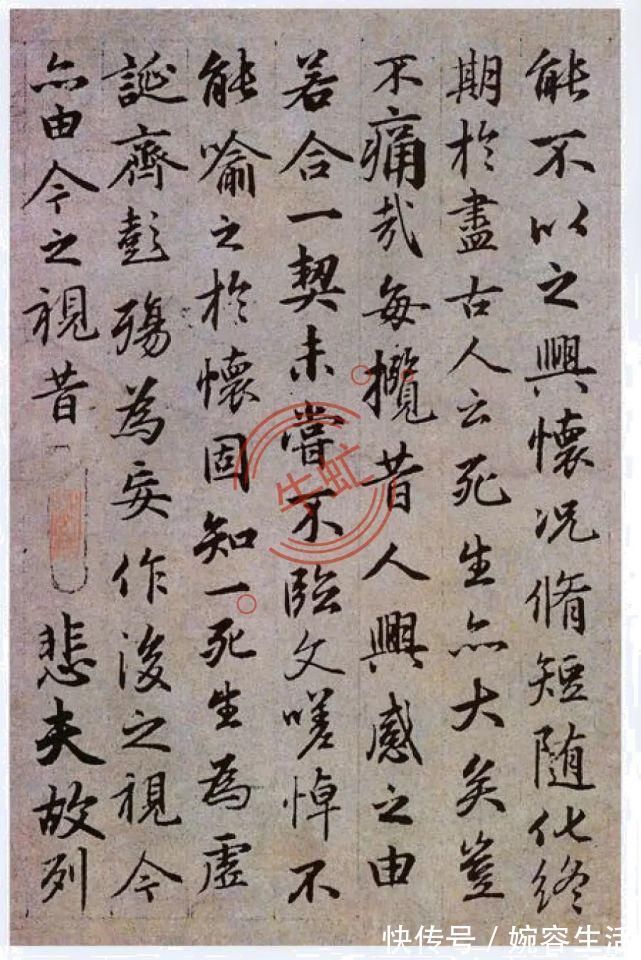 能不以之興懷況脩短随化終
期於盡古人云死生亦大矣豈
不痛哉每攬昔人興感之由
若合一契未嘗不臨文嗟悼不
能喻之於懷固知一死生為虛
誕齊彭殤為妄作後之視今
亦由今之視昔 悲夫故列
快传号／婉容生活